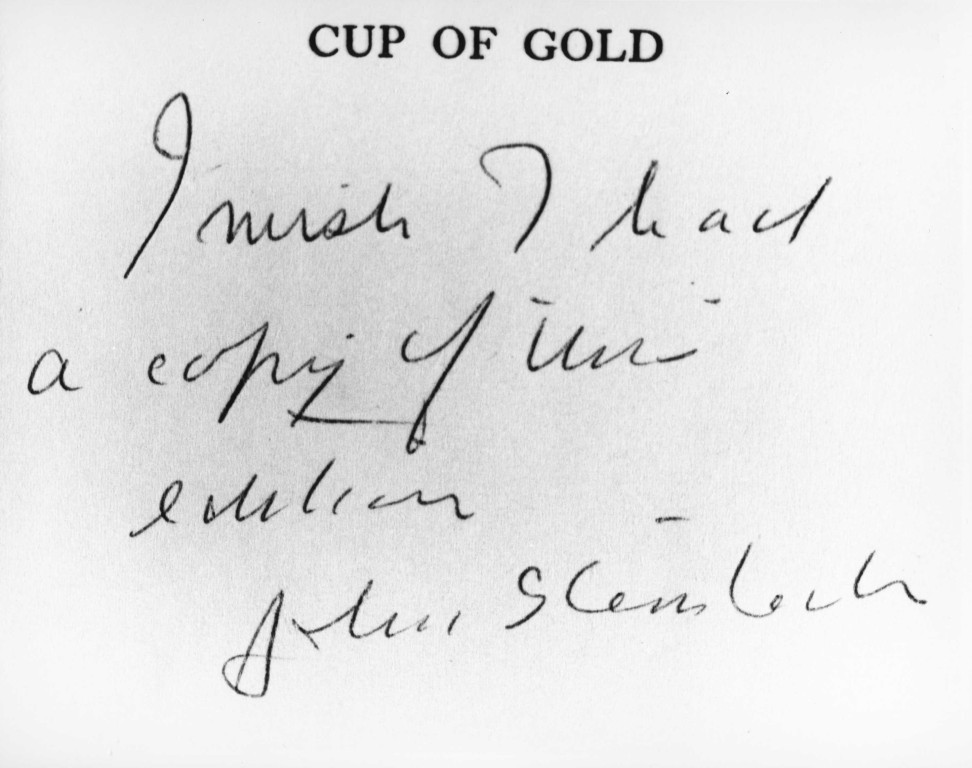 CUP OF GOLD
I wish I had
a copy of this
edition
John Steinbeck